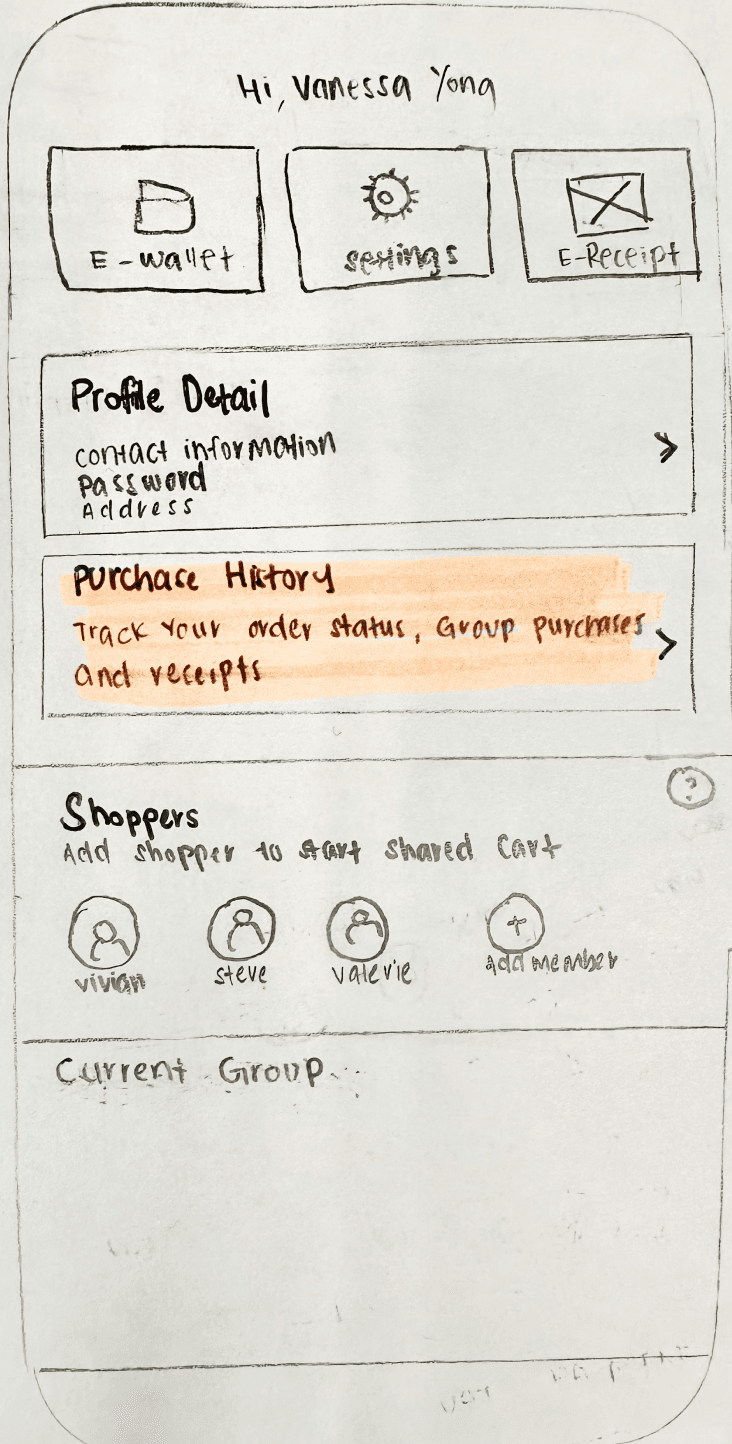 Hi, Vanessa Yong
E-wallet
settings
E-Receipt
Profile Detail
contact information
Password
Address
Purchase History
Track Your order status, Group purchases
and receipts
?
Shoppers
Add shopper to start shared Cart
vivian
steve
valerie
Add member
Current Group